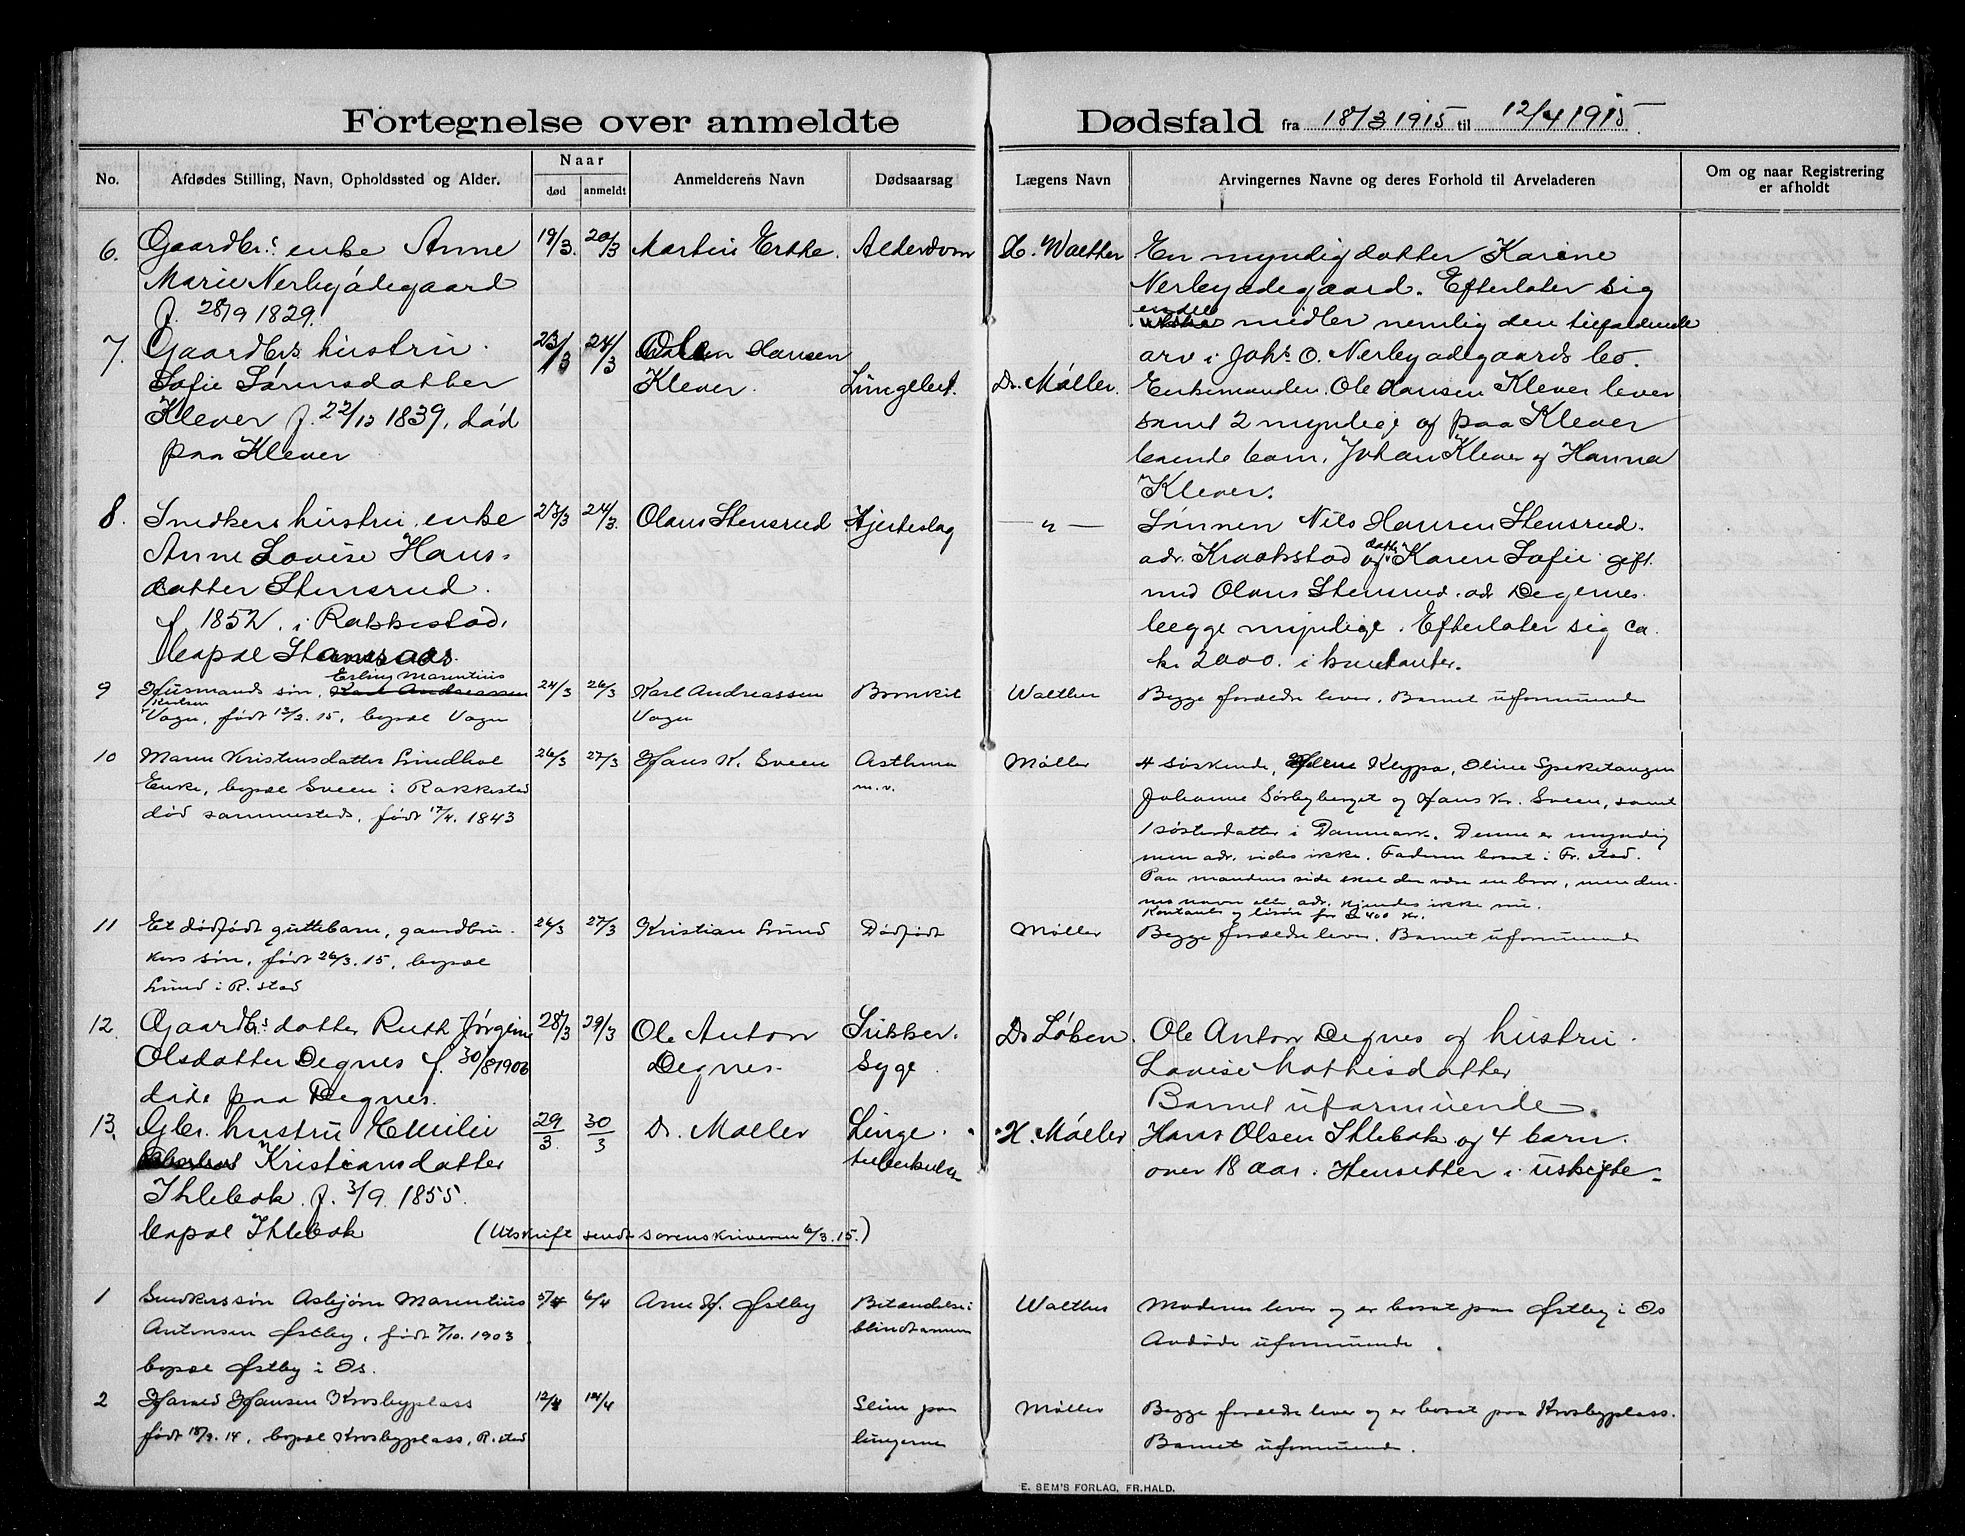 Fortegnelse over anmeldte Dødsfald fra 18/3 1915 til 12/4 1915.
No. Afdødes Stilling, Navn, Opholdssted og Alder. Naar død anmeldt Anmelderens Navn Dødsaarsag Lægens Navn Arvingernes Navne og deres Forhold til Arveladeren Om og naar Registrering er afholdt
6. Gaardbr.s enke Anne 19/3. 20/3 Martin Erthe. Alderdom H. Walther En myndig datter Karine
Marie Nerbyødegaard Nerbyødegaard. Efterlater sig
f. 28/9 1829. endel midler nemlig den tilfaldende
arv i Johs. O. Nerbyødegaards bo.
7. Gaardbrs hustru 23/3 24/3 Ole Hansen
Sofie Sørensdatter Klever. Lungebet. Dr. Møller. Enkemanden Ole Hansen Klever lever
Klever f. 22/12 1839, død samt 2 myndige og paa Klever
paa Klever boende barn, Johan Klever og Hanna
Klever.
8. Snedkers hustru, enke 23/3 24/3. Olaus Stensrud Hjerteslag — " — Sønnen Nils Hansen Stensrud.
Anne Lovise Hans- adr. Kraakstad og datter Karen Sofie gift
datter Stensrud. med Olaus Stensrud. adr Degernes.
f. 1852. i Rakkestad, begge myndige. Efterlater sig ca.
bopæl kr 2000. i kontanter.
9 Husmands søn, Erling Marentius 24/3 26/3 Karl Andreassen Bronkit Walther Begge forældre lever. Barnet uformuende
Karlsen
Vagn, født 13/2. 15, bopæl Vagn Vagn
10 Maren Kristensdatter Lindhol 26/3 27/3 Hans K. Sveen Asthma Møller 4 søskende, Helene Klypa, Oline Spæketangen
Enke, bopæl Sveen i Rakkestad m.v. Johanne Sørbyberget og Hans Kr. Sveen, samt
død sammesteds, født 17/4. 1843 1 søsterdatter i Danmark. Denne er myndig
men adr. vides ikke. Faderen bosat i Fr.stad.
Paa mandens side skal der være en bror, men den-
nes navn eller adr. kjendes ikke nu.
Kontanter og løsøre for 400 kr.
11 Et dødfødt guttebarn, gaardbru- 26/3 27/3 Kristian Lund Dødfødt Møller Begge forældre lever. Barnet uformuende
kers søn, født 26/3. 15, bopæl
Lund i R.stad
12 Gaardbr.s datter Ruth Jørgine 28/3 29/3 Ole Anton Sukker- Dr Løken. Ole Anton Degnes og hustru
Olsdatter Degnes f. 30/8 1906 Degnes syge Lovise Mathisdatter
døde paa Degnes. Barnet uformuende.
13. Gbr. hustru Emilie 29/3 30/3 Dr. Møller Lunge- H. Møller Hans Olsen Ihlebæk og 4 barn
Kristiansdatter tuberkulose over 18 aar. Hensitter i uskifte
Ihlebæk f. 3/9. 1855.
bopæl Ihlebæk (Utskrift sendt sorenskriveren 6/3. 15.)
1 Snekkerssøn Asbjørn Marentius 5/4 6/4 Arne H. Østby Betændelse i Walther Moderen lever og er bosat paa Østby i Os
Antonsen Østby, født 7/10. 1903 blindtarmen Avdøde uformuende.
bopæl Østby i Os.
2 Harald Hansen Krosbyplass 12/4 14/4 Slim paa Møller Begge forældre lever og er bosat paa Krosbyplass.
født 18/9. 14, bopæl Krosbyplass, R.stad lungerne Barnet uformuende.
E. SEM'S FORLAG, FR.HALD.